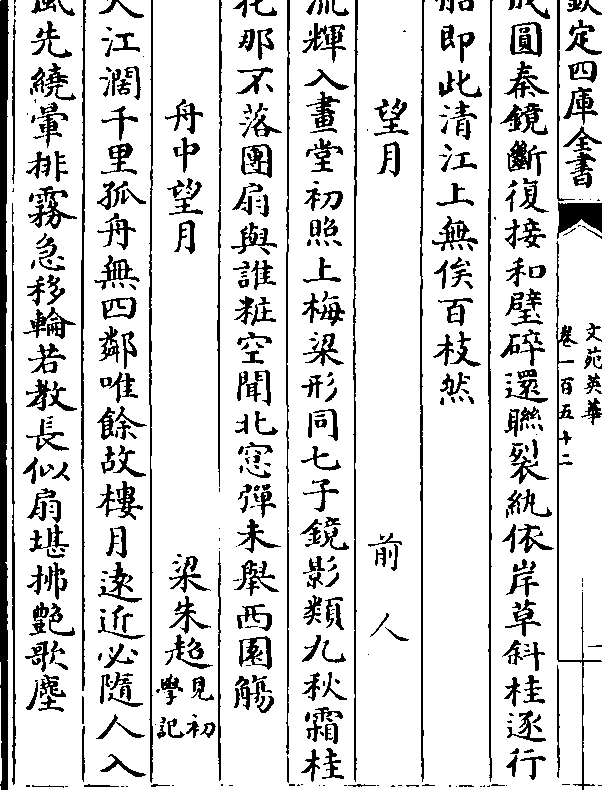 欽定四庫全書
文苑英華
卷一百五十二
成圓秦鏡斷復接和璧碎還聯裂紈依岸草斜桂逐行
船即此清江上無俟百枝然
望月 前人
流輝入畫堂初照上梅梁形同七子鏡影類九秋霜桂
花那不落團扇與誰粧空聞北窓彈未舉西園觴
舟中望月 梁朱超見初學記
大江濶千里孤舟無四鄰唯餘故樓月遠近必隨人入
風先繞暈排霧急移輪若教長似扇堪拂艷歌塵